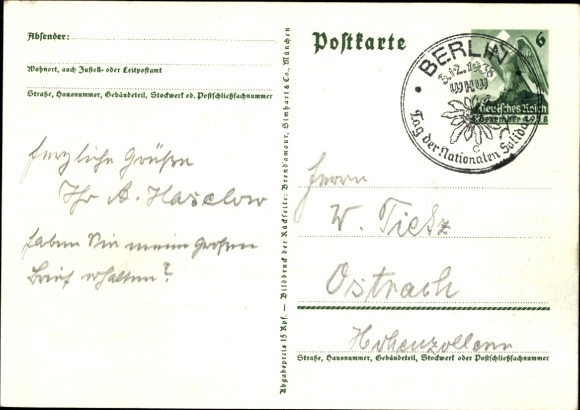 Absender:
Wohnort, auch Zustell- oder Leitpostamt
Straße, Hausnummer, Gebäudeteil, Stockwerk od. Postschließfachnummer
herzliche Grüße
Ihr A. Haselow
haben Sie meinen großen
Brief erhalten?
Abgabepreis 15 Rpf. — Bilddruck der Rückseite: Brend'amour, Simhart & Co., München
Postkarte
6
Deutsches Reich
4. Dezember 1938
BERLIN
3.12.1938
WHW
c
Tag der Nationalen Solida
Herrn
W. Tietz
Ostrach
Hohenzollern
Straße, Hausnummer, Gebäudeteil, Stockwerk oder Postschließfachnummer